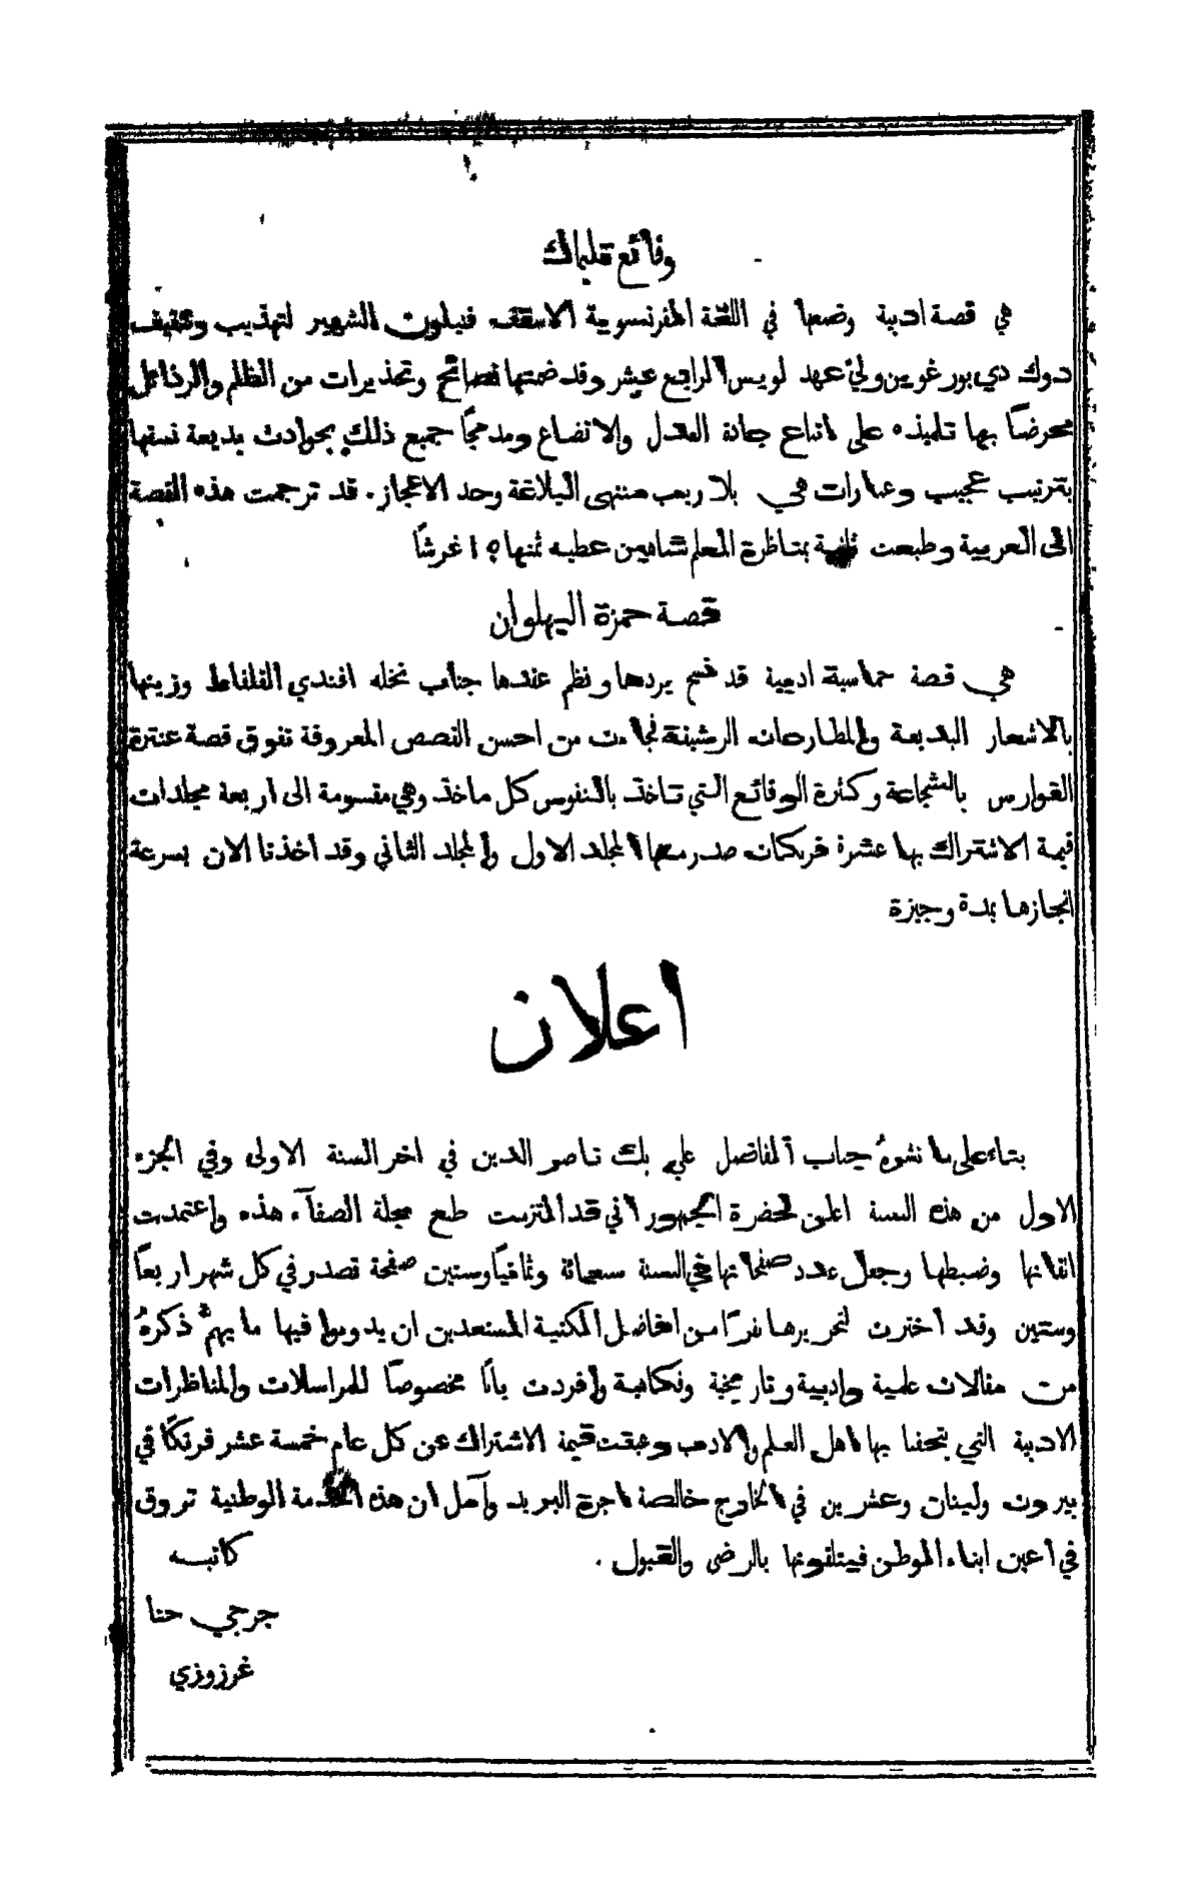 وقائع تليماك
هي قصة ادبية وضعها في اللغة الفرنسوية الاسقف فنيلون الشهير لتهذيب وتثقيف
دوك دي بورغوين ولي عهد لويس الرابع عشر وقد ضمنها نصائح وتحذيرات من الظلم والرذائل
محرضًا بها تلميذه على اتباع جادة العدل والاتضاع ومدمجًا جميع ذلك بحوادث بديعة نسقها
بترتيب عجيب وعبارات هي بلا ريب منتهى البلاغة وحد الاعجاز. قد ترجمت هذه القصة
الى العربية وطبعت ثانية بمناظرة المعلم شاهين عطيه ثمنها ١٥ غرشًا
قصة حمزة البهلوان
هي قصة حماسية ادبية قد نسج بردها ونظم عقدها جناب نخله افندي القلفاط وزينها
بالاشعار البديعة والمطارحات الرشيقة فجاءت من احسن القصص المعروفة تفوق قصة عنترة
الفوارس بالشجاعة وكثرة الوقائع التي تاخذ بالنفوس كل ماخذ وهي مقسومة الى اربعة مجلدات
قيمة الاشتراك بها عشرة فرنكات صدر منها المجلد الاول والمجلد الثاني وقد اخذنا الان بسرعة
انجازها بمدة وجيزة
اعلان
بناء على ما نشرهُ جناب الفاضل علي بك ناصر الدين في اخر السنة الاولى وفي الجزء
الاول من هذه السنة اعلن لحضرة الجمهور اني قد التزمت طبع مجلة الصفآء هذه واعتمدت
اتقانها وضبطها وجعل عدد صفحاتها في السنة سبعمائة وثمانيًا وستين صفحة تصدر في كل شهر اربعًا
وستين وقد اخترت لتحريرها نفرًا من افاضل الكتبة المستعدين ان يدونوا فيها ما يهم ذكرهُ
من مقالات علمية وادبية وتاريخية وفكاهية وافردت بابًا مخصوصًا للمراسلات والمناظرات
الادبية التي يتحفنا بها اهل العلم والادب وعينت قيمة الاشتراك عن كل عام خمسة عشر فرنكًا في
بيروت ولبنان وعشرين في الخارج خالصة اجرة البريد وآمل ان هذه الخدمة الوطنية تروق
في اعين ابناء الوطن فيتلقونها بالرضى والقبول . كاتبه
جرجي حنا
غرزوزي